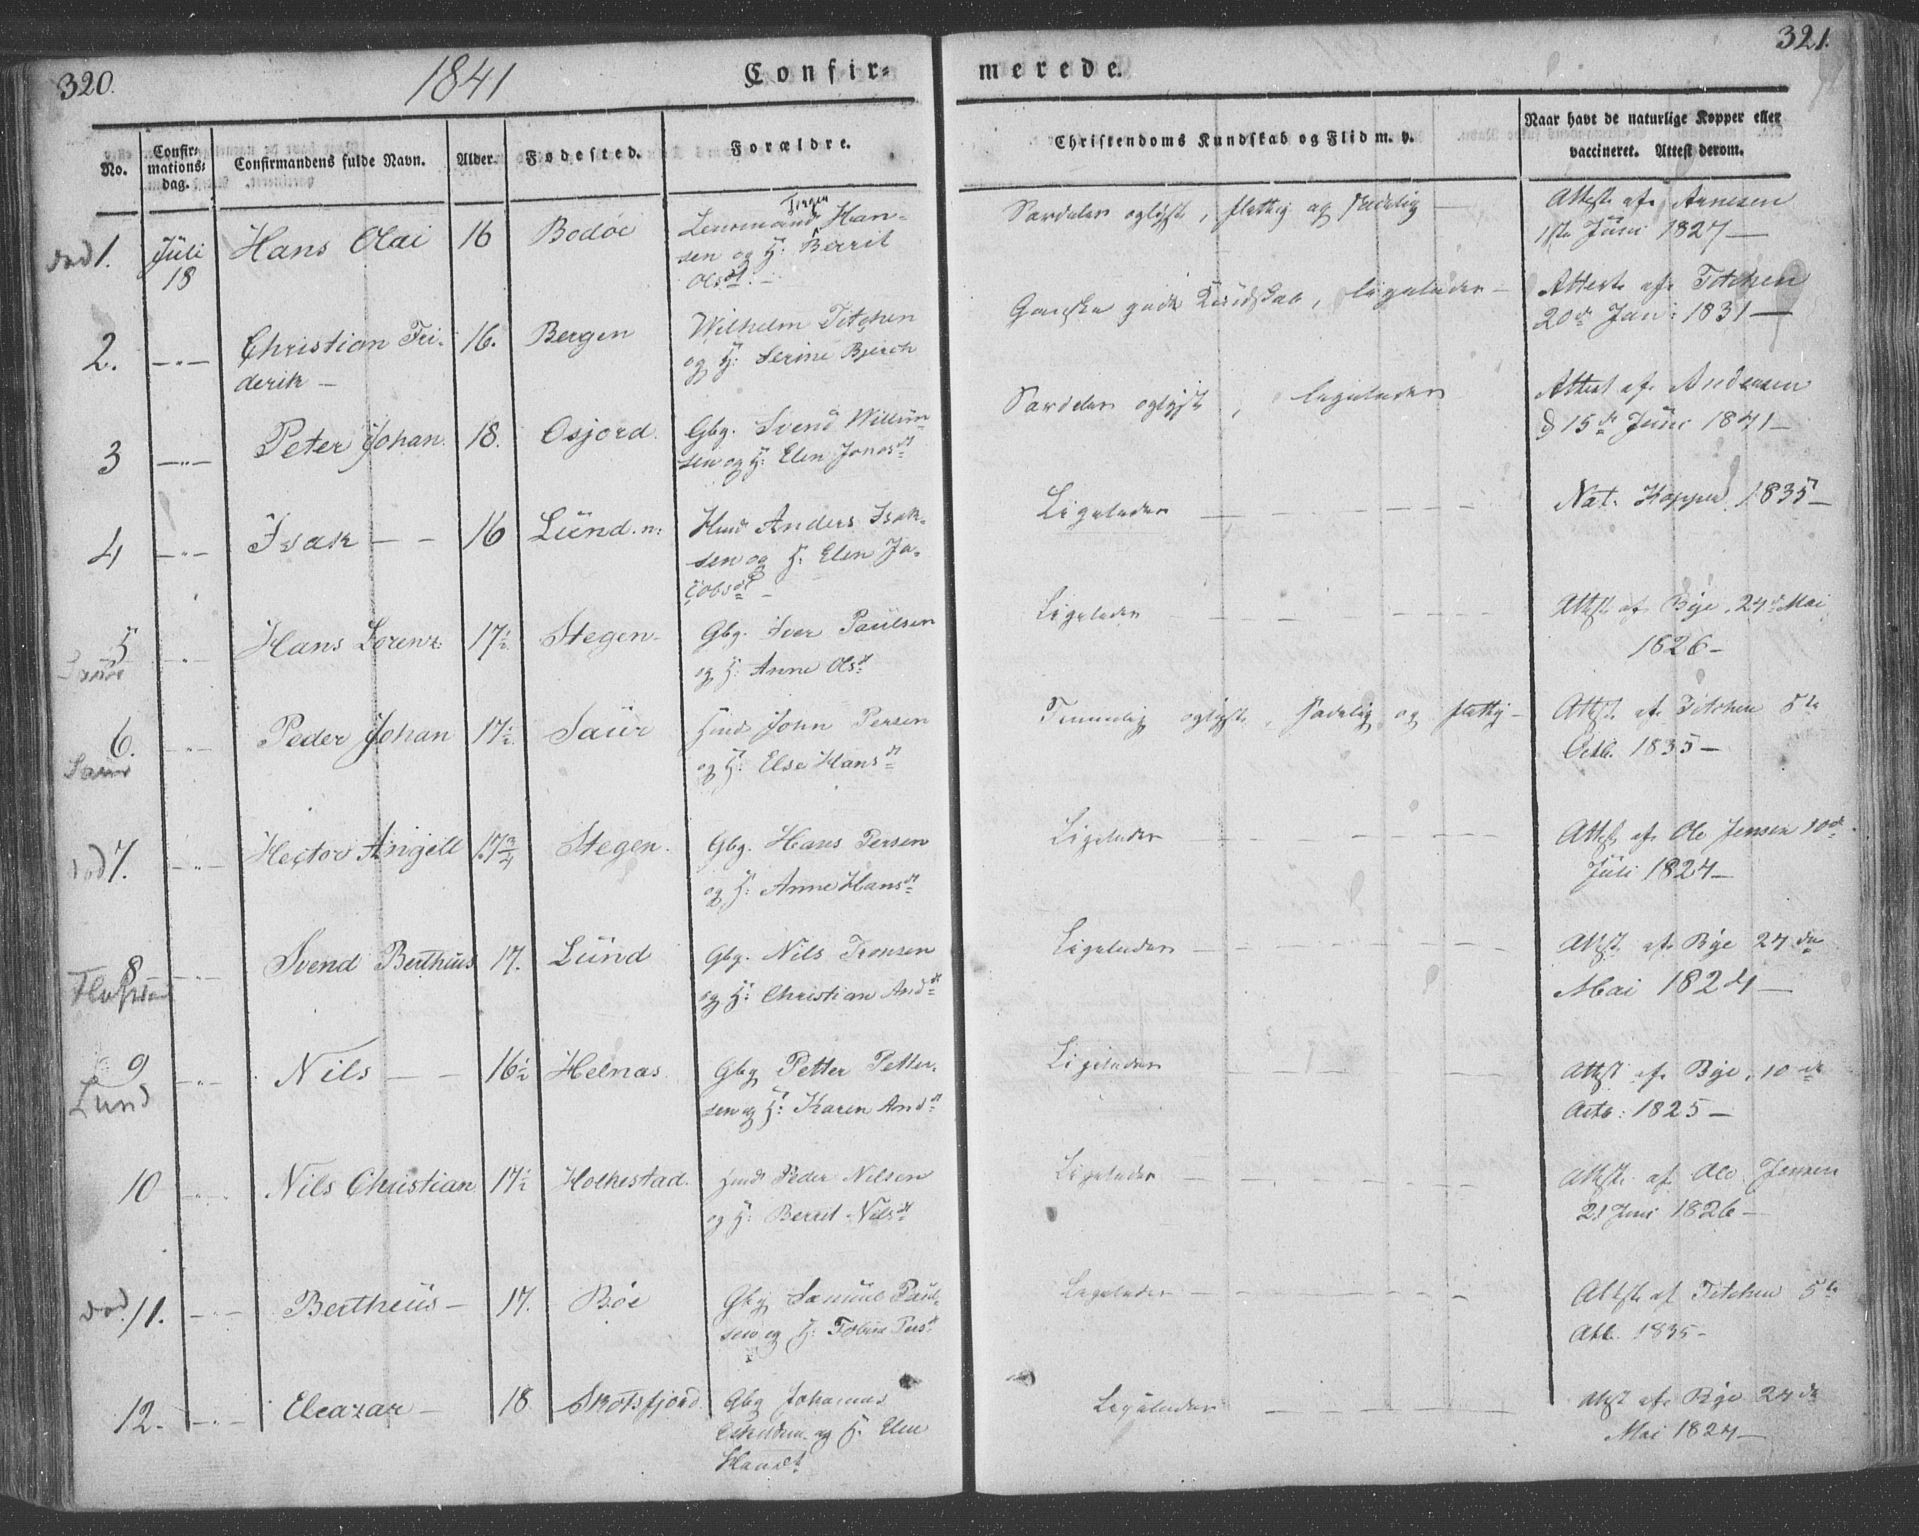 320.
1841
Confir-
merede.
321.
No.
Confir-
mations-
dag.
Confirmandens fulde Navn.
Alder.
Fødested.
Forældre.
Christendoms Kundskab og Flid m. v.
Naar havt de naturlige Kopper eller
vaccineret. Attest derom.
død 1.
Juli
18
Hans Olai
16
Bodøe
Lensmand Han-
sen og H: Berrit
Olsdt. -
Særdeles oplyst, flittig og sædelig —
Attest af Arnesen
1ste Juni 1827 —
2.
—"—
Christian Fri-
derik —
16.
Bergen
Wilhelm Titchen
og H: Serine Bjerch
Ganske god Kundskab, ligeledes —
Attest af Titchen
20de Jan: 1831 —
3
—"—
Peter Johan
18.
Osjord.
Gbg. Svend Willum-
sen og H: Elen Jonasdt
Særdeles oplyst, ligeledes
Attest af Andersen
d 15de Juni 1841 —
4
—"—
Isak — —
16
Lund. n:
Huusd Anders Isak-
sen og H: Elen Ja-
cobsdt —
Ligeledes — — — — —
Nat. Kopper 1835 —
5
—"—
Hans Lorenz
17½
Stegen -
Gbg. Iver Paulsen
og H: Anne Olsdt
Ligeledes — — — — —
Attest af Bye, 24de Mai
1826 -
6.
Saur
—"—
Peder Johan
17½
Saur
Huusd John Persen
og H: Else Hansdt
Temmelig oplyst, sædelig og flittig -
Attest af Titchen 5te
Octb. 1835 —
død 7.
—"—
Hector Angell
17¾
Stegen.
Gbg. Hans Persen
og H: Anne Hansdt
Ligeledes — — — — —
Attest af Ole Jensen 10de
Juli 1824 —
8
—"—
Svend Bertheus
17.
Lund
Gbg. Nils Tronsen
og H: Christian Anddt
Ligeledes — — — — —
Attest af Bye 24de
Mai 1824 —
9
Lund
—"—
Nils — —
16½
Helnæs.
Gbg Petter Petter-
sen og H: Karen Anddt
Ligeledes — — — — —
Attest af Bye, 10de
Octb: 1825 —
10
—"—
Nils Christian
17½
Holkestad.
Huusd Peder Nilsen
og H: Berrit Nilsdt
Ligeledes — — — — —
Attest af Ole Jensen
21 Juni 1826 —
død. 11.
—"—
Bertheus —
17.
Bøe
Gbg Samuel Paul-
sen og H: Persdt
Ligeledes — — — — —
Attest af Titchen 5te
1835 -
12.
—"—
Eleazar —
18
Skotsfjord.
Gbg Johannes
og H: Elen
Hansdt
Ligeledes — — — — —
Attest af Bye 24de
Mai 1824 —